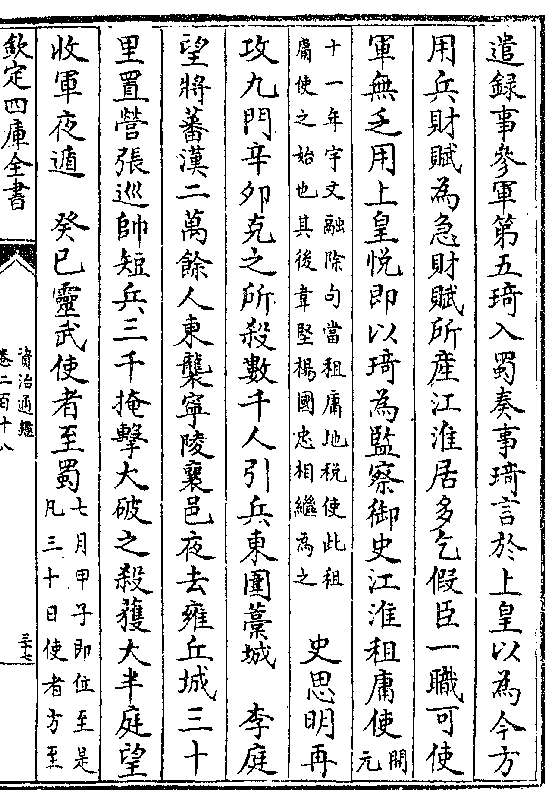 遣録事參軍第五琦入蜀奏事琦言於上皇以為今方
用兵財賦為急財賦所産江淮居多乞假臣一職可使
軍無乏用上皇悦即以琦為監察御史江淮租庸使
開
元
十一年宇文融除句當租庸地税使此租
庸使之始也其後韋堅楊國忠相繼為之
史思明再
攻九門辛夘克之所殺數千人引兵東圍藁城 李庭
望將蕃漢二萬餘人東襲寧陵襄邑夜去雍丘城三十
里置營張巡帥短兵三千掩擊大破之殺獲大半庭望
收軍夜遁 癸巳靈武使者至蜀
七月甲子即位至是
凡三十日使者方至
欽定四庫全書
資治通鑑
卷二百十八
三十七